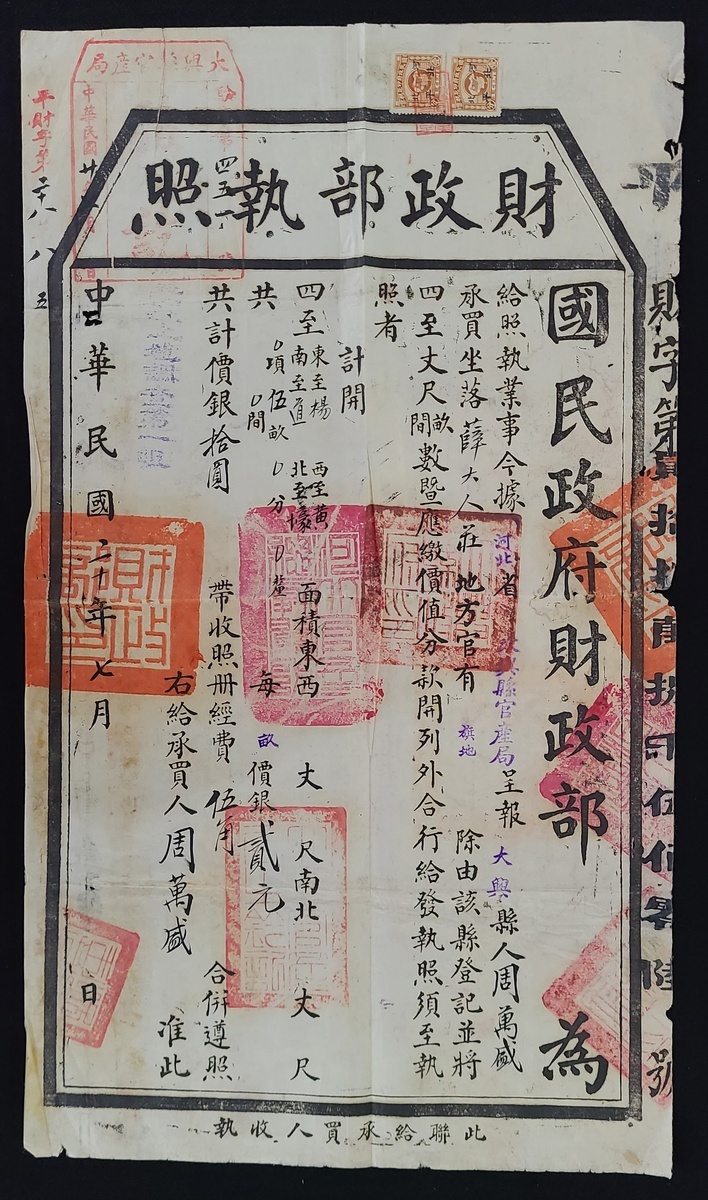 財政部執照
國民政府財政部 為
給照執業事今據 河北 省 大興縣官產局 呈報 大興 縣人周萬盛
承買坐落薛大人莊 地方官有 旗地 除由該縣登記並將
四至丈尺畝間數暨應繳價值分款開列外合行給發執照須至執
照者
計開
四至 東至楊 西至黃 南至道 北至壕 面積東西 丈 尺南北 丈 尺
共 0項伍畝0分0釐 0間 每 畝 價銀貳元
共計價銀拾圓 帶收照册經費 伍角 合併遵照
右給承買人周萬盛 准此
中華民國二十年七月 日
此聯給承買人收執
大興縣官產局
中華民國廿
平財字第
財字第
號